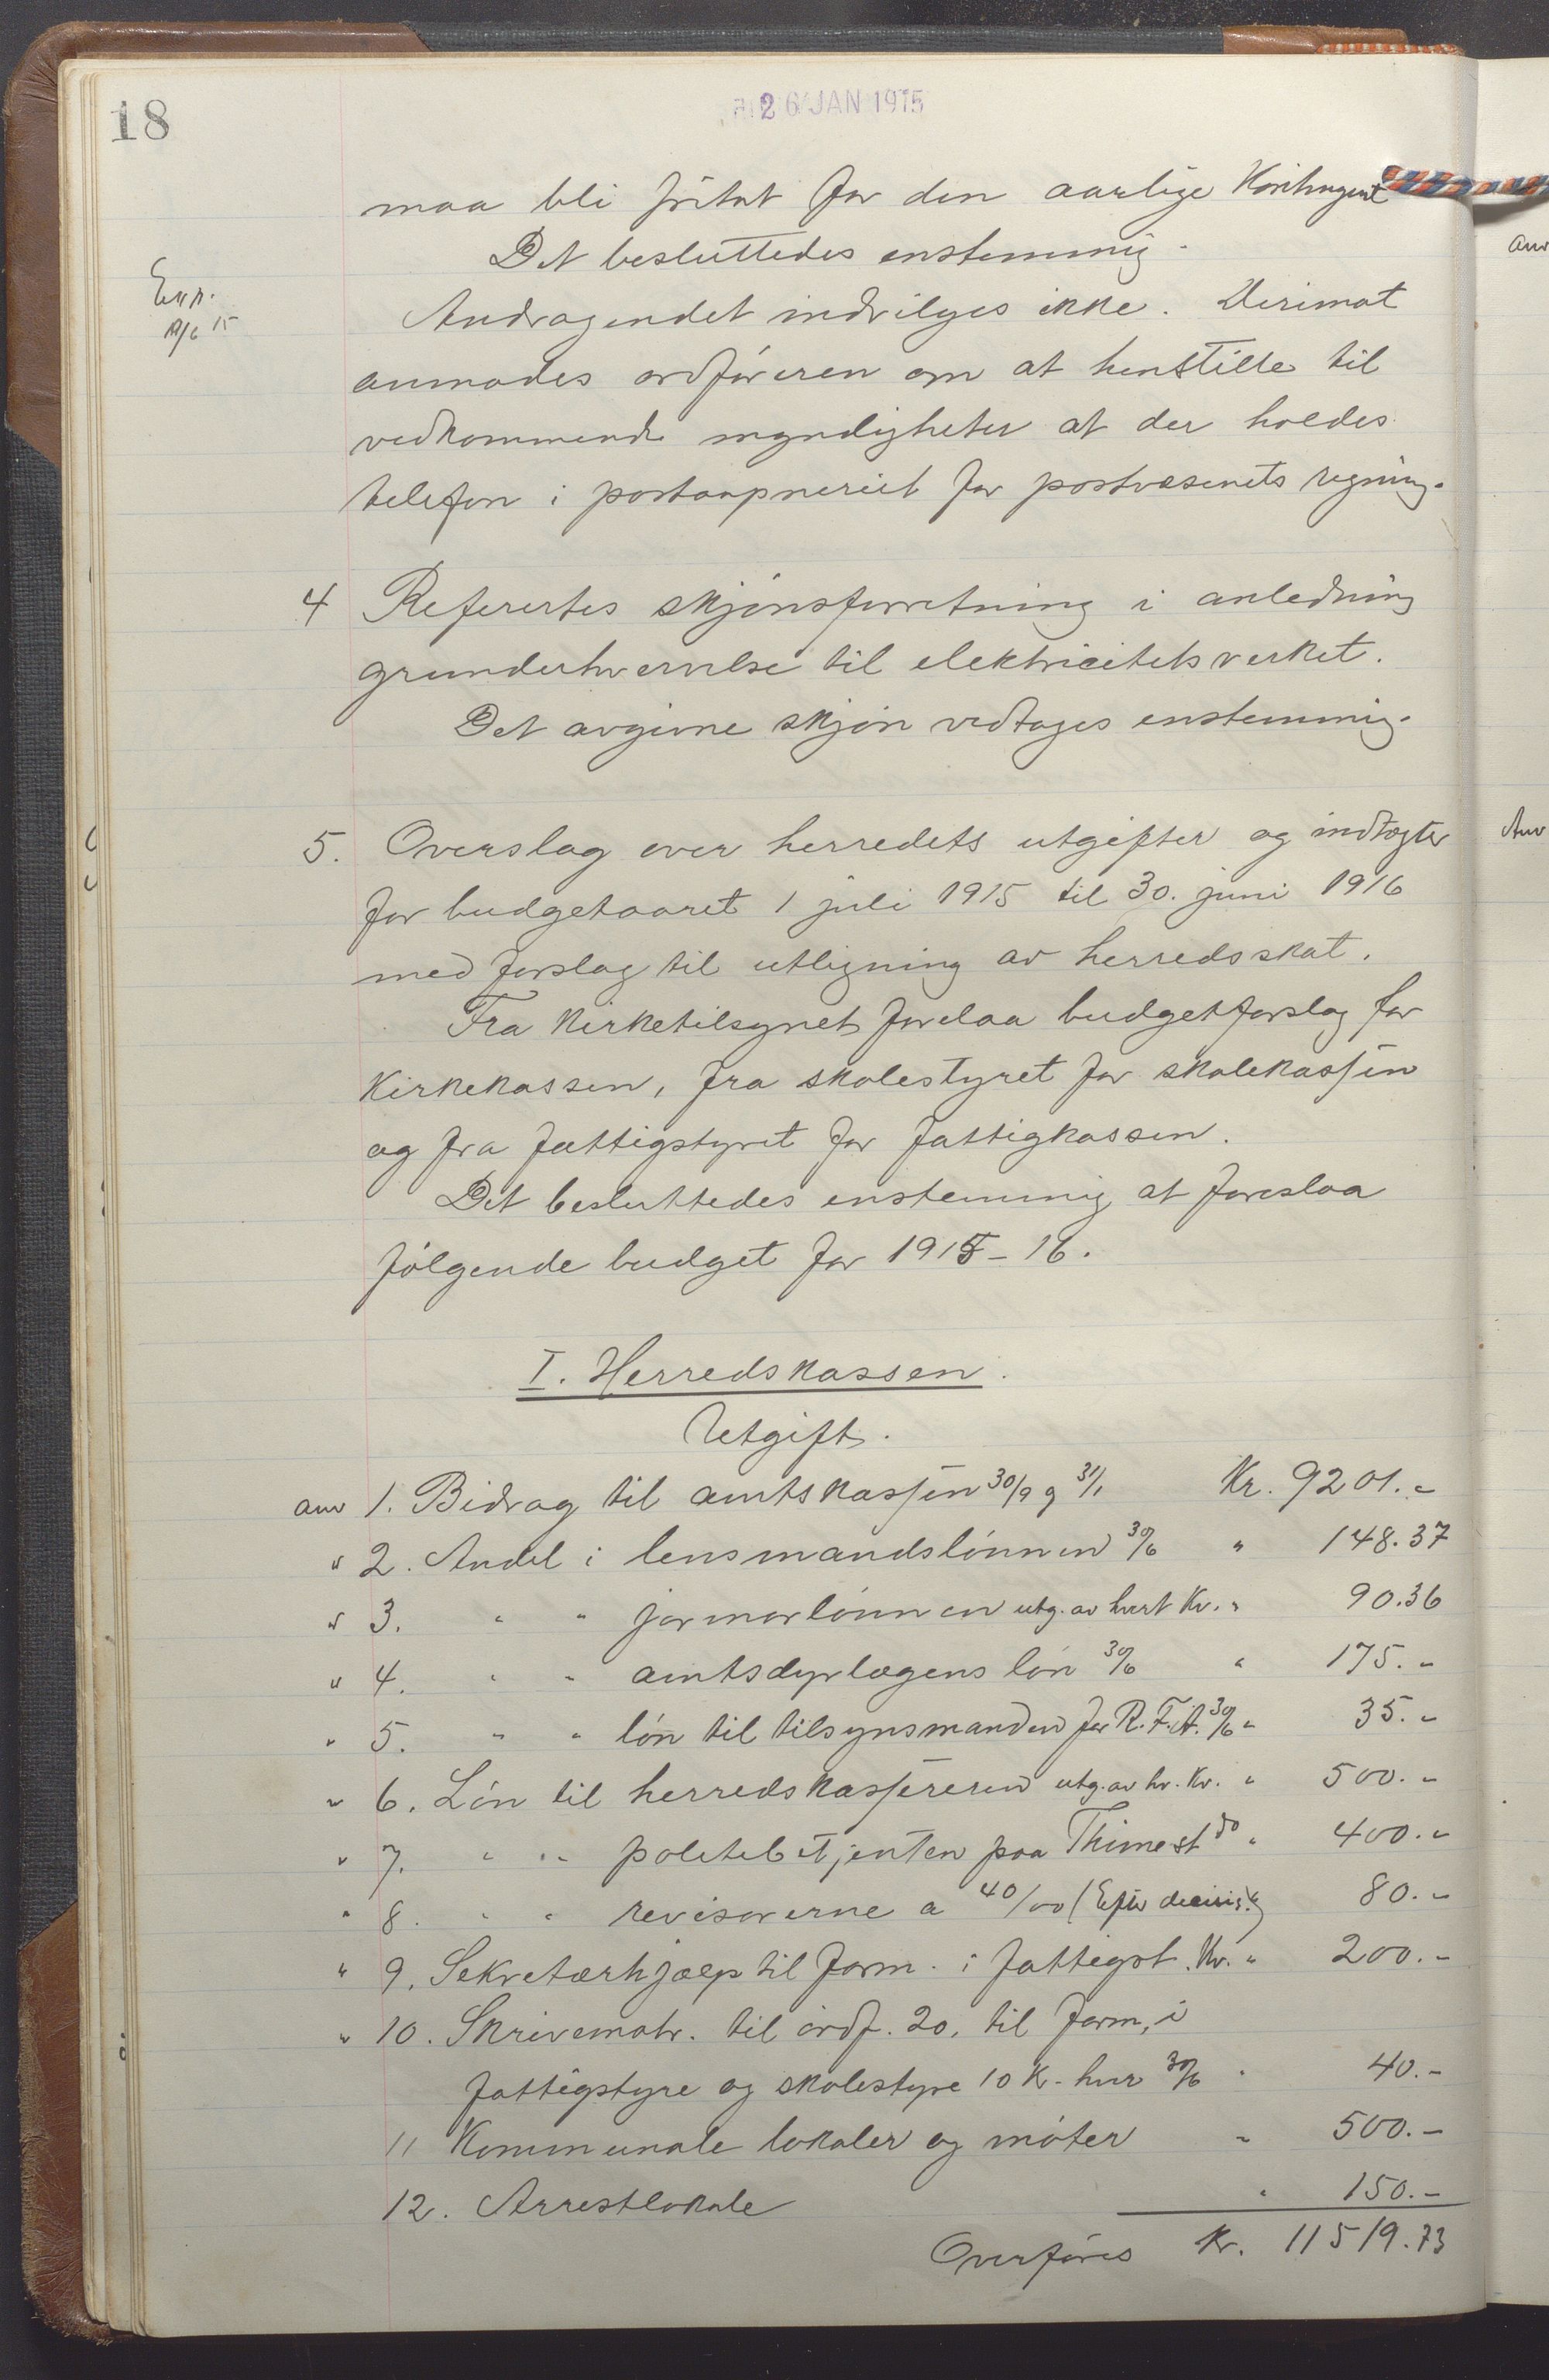 18
26 JAN 1915
maa bli fritat for den aarlige Kontingent
Det besluttedes enstemmig.
Andragendet indvilges ikke. Derimot
anmodes ordføreren om at henstille til
vedkommende myndigheter at der holdes
telefon i postaapneriet for postvæsenets regning.
4 Refertes skjønsforretning i anledning
grunderhvervelse til elektricitetsverket.
Det avgivne skjøn vedtages enstemmig.
5. Overslag over herredets utgifter og indtægter
for budgetaaret 1 juli 1915 til 30. juni 1916
med forslag til utligning av herredsskat.
Fra Kirketilsynet forelaa budgetforslag for
Kirkekassen, fra skolestyret for skolekassen
og fra fattigstyret for fattigkassen.
Det besluttedes enstemmig at foreslaa
følgende budget for 1915-16.
I. Herredskassen.
Utgift.
anv 1. Bidrag til amtskassen 30/9 og 31/1 Kr. 9201.-
" 2. Andel i lensmandslønnen 30/6 " 148.37
" 3. " " jormorlønnen utg. av hvert Kv. " 90.36
" 4. " " amtsdyrlægens løn 30/6 " 175.-
" 5. " " løn til tilsynsmanden for R.F.A. 30/6 " 35.-
" 6. Løn til herredskassereren utg. av hv. Kv. " 500.-
" 7. " " politibetjenten paa Thimest do " 400.-
" 8. " " revisorerne a 40/00 (Efter decisi 80.-
" 9. Sekretærhjælp til form. i fattigst. Kv. " 200.-
" 10. Skrivematr. til ordf. 20, til form. i
fattigstyre og skolestyre 10 Kr. hver 30/6 " 40.-
11 Kommunale lokaler og møter " 500.-
12. Arrestlokale " 150.-
Overføres Kr. 11519.73